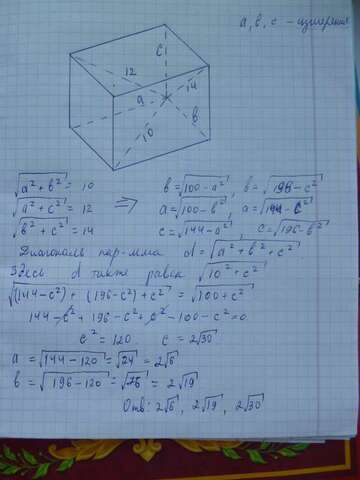 a, b, c - измерения
c
12
14
a
b
10
√(a² + b²) = 10
√(a² + c²) = 12
√(b² + c²) = 14
⇒
b = √(100 - a²), b = √(196 - c²)
a = √(100 - b²), a = √(144 - c²)
c = √(144 - a²), c = √(196 - b²)
Диагональ пар-мма d = √(a² + b² + c²)
Здесь d также равна √(10² + c²)
√((144 - c²) + (196 - c²) + c²) = √(100 + c²)
144 - c² + 196 - c² + c² - 100 - c² = 0
c² = 120 c = 2√30
a = √(144 - 120) = √24 = 2√6
b = √(196 - 120) = √76 = 2√19
Отв: 2√6, 2√19, 2√30